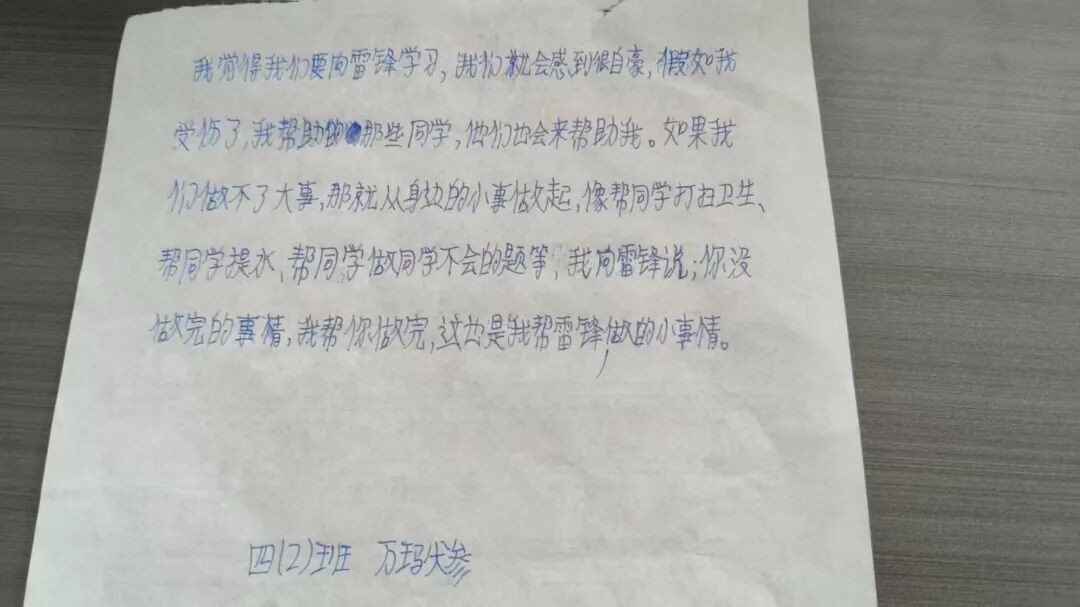 我觉得我们要向雷锋学习，我们就会感到很自豪，假如我
受伤了，我帮助的那些同学，他们也会来帮助我。如果我
们做不了大事，那就从身边的小事做起，像帮同学打扫卫生、
帮同学提水、帮同学做同学不会的题等，我向雷锋说；你没
做完的事情，我帮你做完，这也是我帮雷锋做的小事情。
四(2)班 万玛尖参